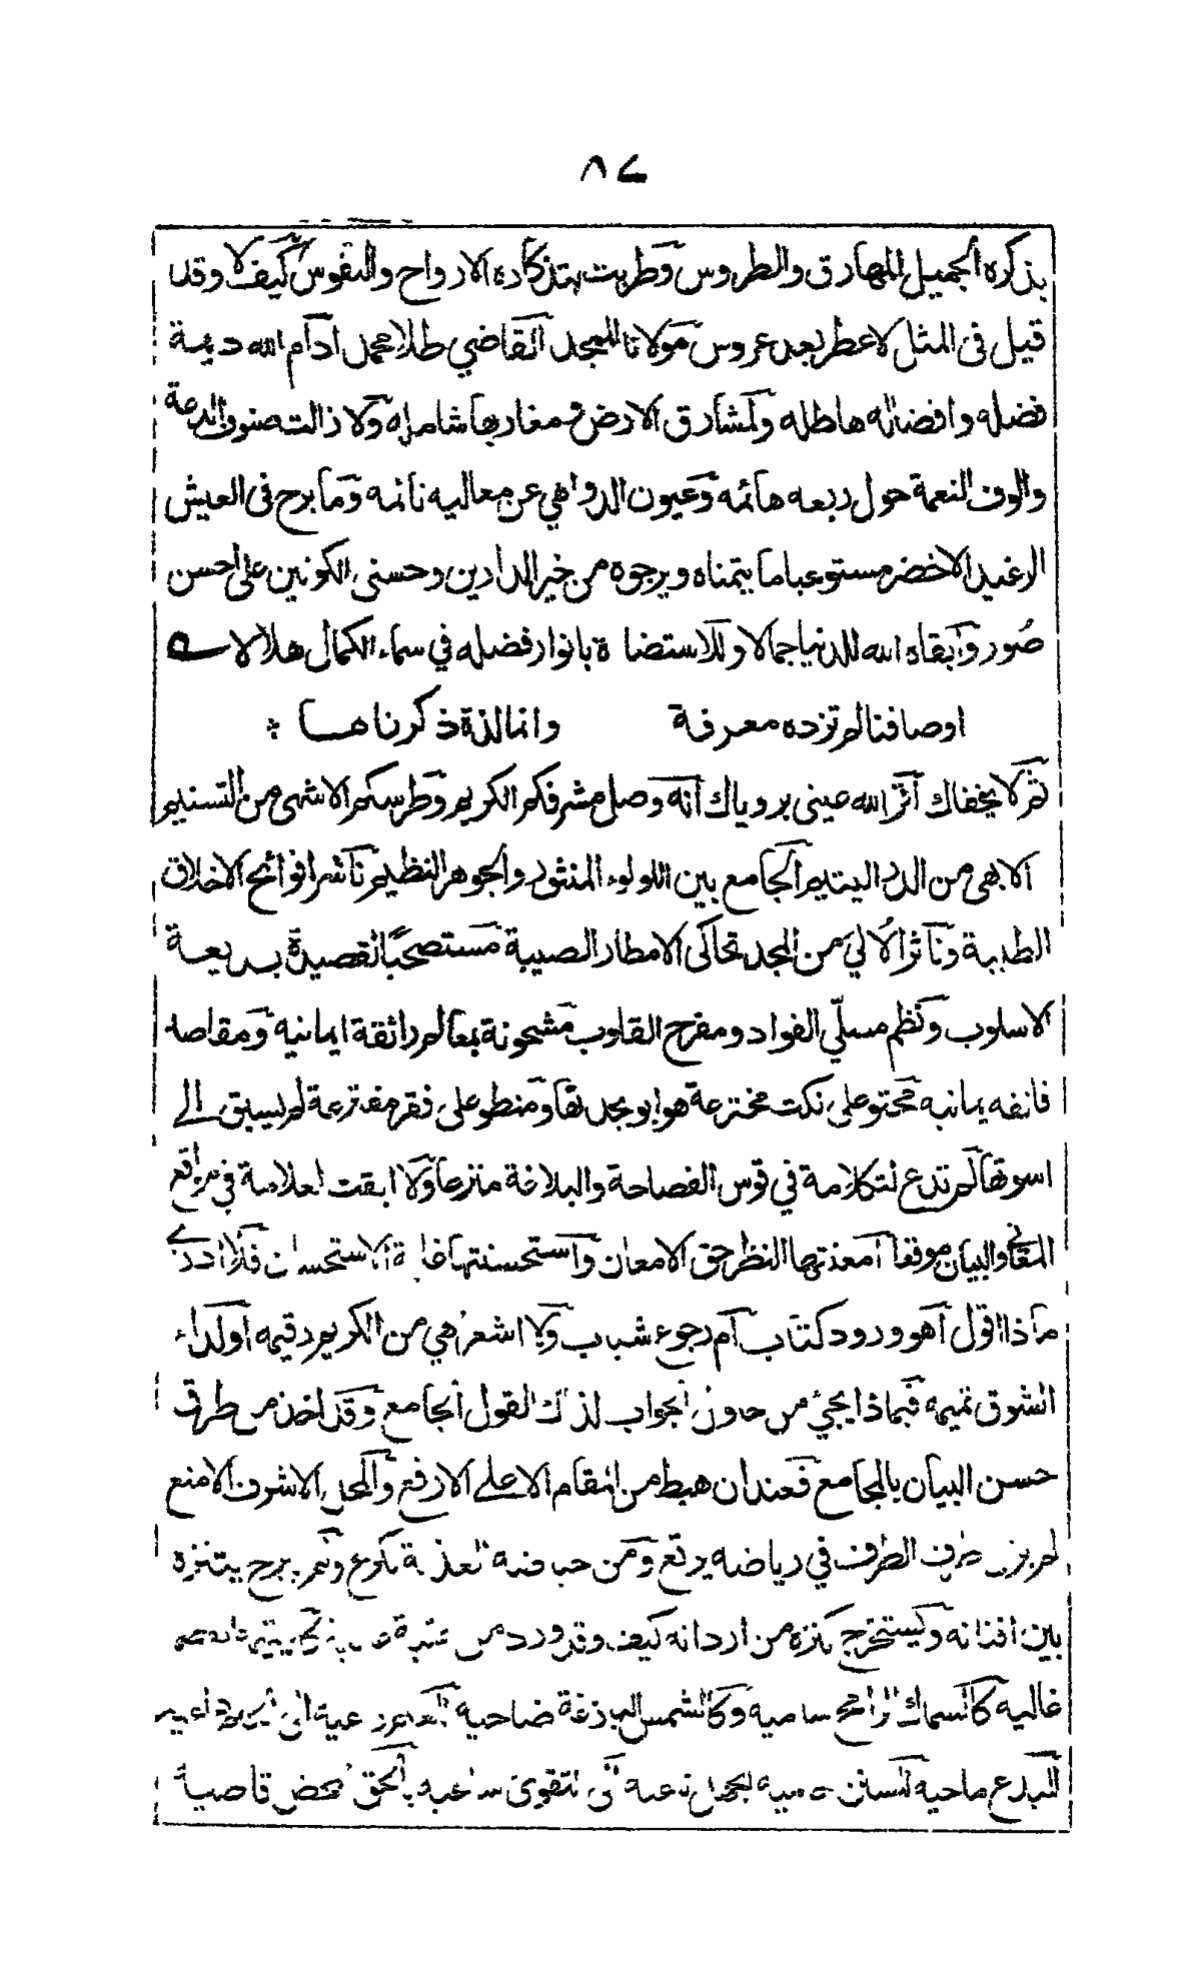 ٨٧
بذكره الجميل المهارق والطروس وطربت بتذكاره الارواح والنفوس كيف لا وقد
قيل فى المثل لا عطر بعد عروس مولانا المجد القاضي طلا محمد ادام الله ديمة
فضله وافضاله هاطله ولمشارق الارض ومغاربها شامله ولا زالت صنوف
والوف النعمة حول ربعه هائمه وعيون الدواهي عن معاليه نائمه وما برح فى العيش
الرغيد الاخضر مستوعبا ما يتمناه ويرجوه من خير الدارين وحسنى الكونين على احسن
صُور وابقاه الله للدنيا جمالا وللاستضاءة بانوار فضله في سماء الكمال هلالا
اوصافنا لم تزده معرفة وانما لذة ذكرناها
ثم لا يخفاك اقر الله عينى بروياك انه وصل مشرفكم الكريم وطرسكم الاشهى من التسنيم
الابهى من الدر اليتيم الجامع بين اللولوء المنثور والجوهر النظيم ناشرا فوائح الاخلاق
الطيبة وناثرا لآلي من المجد تحاكى الامطار الصيبة مستصحبًا لقصيدة بديعة
الاسلوب ونظم مسلّي الفواد ومفرح القلوب مشحونة بمعالم رائقة ايمانيه ومقاصد
فائقه يمانيه محتو على نكت مخترعة هو ابو بجدتها ومنطو على فقر مفترعة لم يسبق الى
اسوتها لم تدع لتكلامة في قوس الفصاحة والبلاغة منزعا ولا ابقت لعلامة في مواقع
المعاني والبيان موقعا امعنتها النظر حق الامعان واستحسنتها غاية الاستحسان فلا ادرى
ماذا اقول اهو ورود كتاب ام رجوع شباب ولا اشعر اهي من الكريم رقيمه او لداء
الشوق تميمه فبماذا يجيء من حاول الجواب لذلك القول الجامع وقد اخذ من طرق
حسن البيان بالمجامع فعند ان هبط من المقام الاعلى الارفع والمحل الاشرف الامنع
لم يزل طرف الطرف في رياضه يرتع ومن حياضه العذبة يكرع ولم يبرح يتنزه
بين افنانه ويستخرج كنزه من اردانه كيف وقد ورد من
غاليه كالسماك الرامح ساميه وكالشمس البازغة ضاحيه
للبدع ماحيه للسنن حاميه للجهل ناعيه الى التقوى ساعيه بالحق قاضية